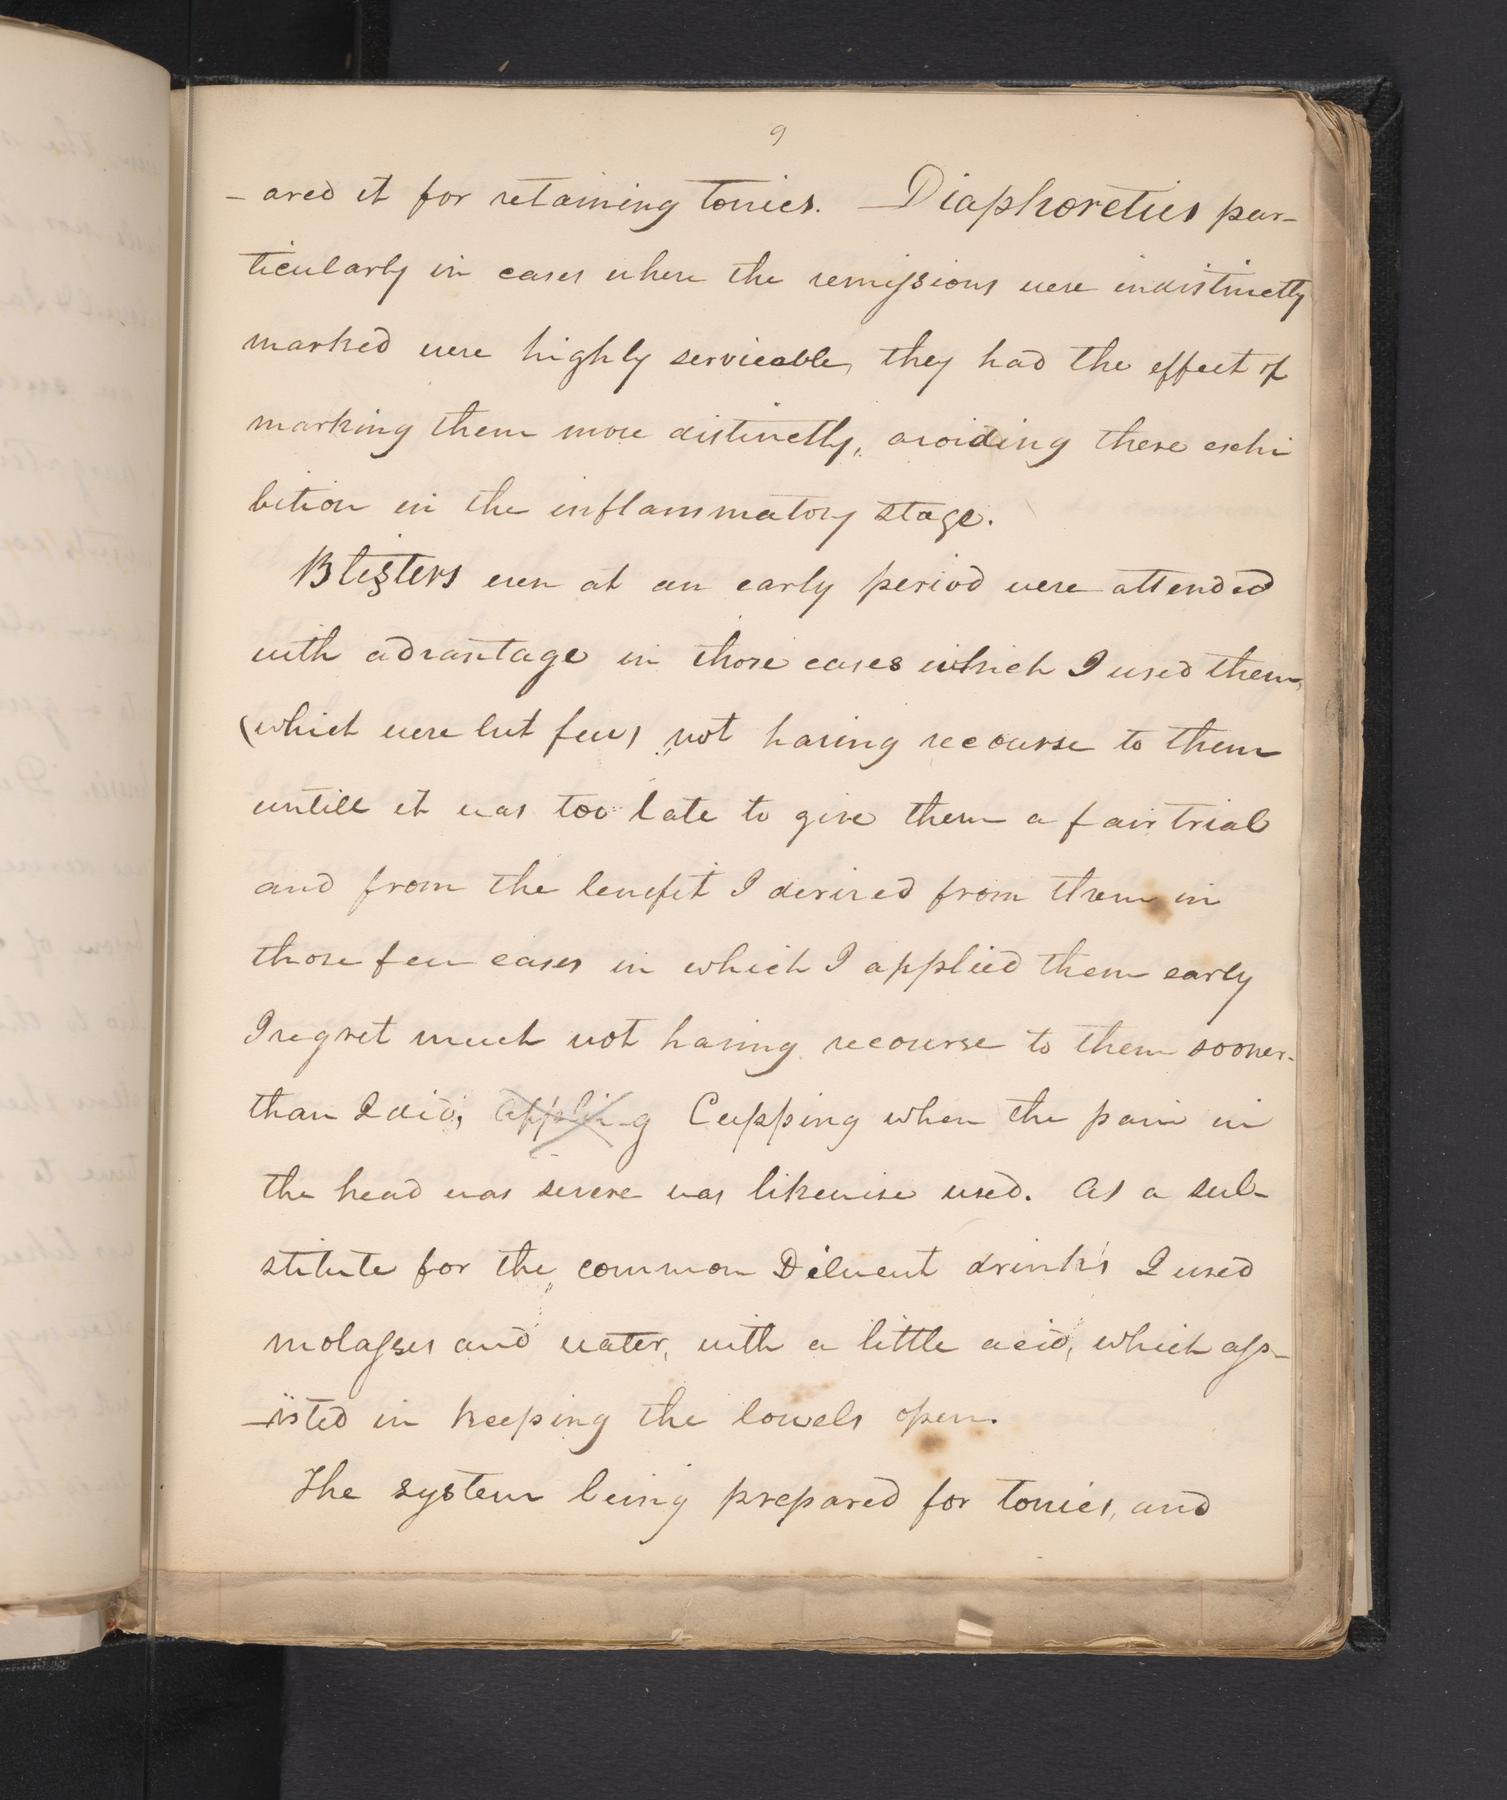 9
- ared it for retaining tonics. Diaphoretics par-
ticularly in cases where the remissions were indistinctly
marked were highly serviceable, they had the effect of
marking them more distinctly, avoiding there exhi
bition in the inflammatory stage.
Blisters even at an early period were attended
with advantage in those cases which I used them,
(which were but few) not having recourse to them
untill it was too late to give them a fair trial
and from the benefit I derived from them in
those few cases in which I applied them early
I regret much not having recourse to them sooner
than I did, appling Cupping when the pain in
the head was severe was likewise used. As a sub-
stitute for the common Diluent drinks I used
molasses and water, with a little acid, which ass-
-isted in keeping the bowels open.
The system being prepared for tonics, and